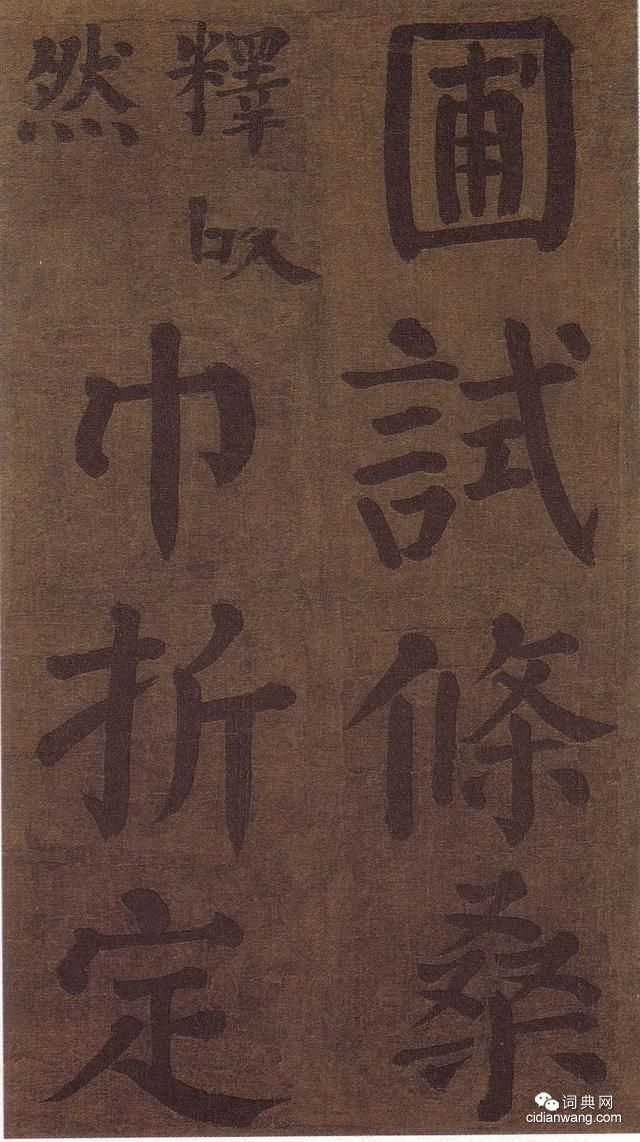 圃試條桑
釋
然
巾折定
词典网
cidianwang.com